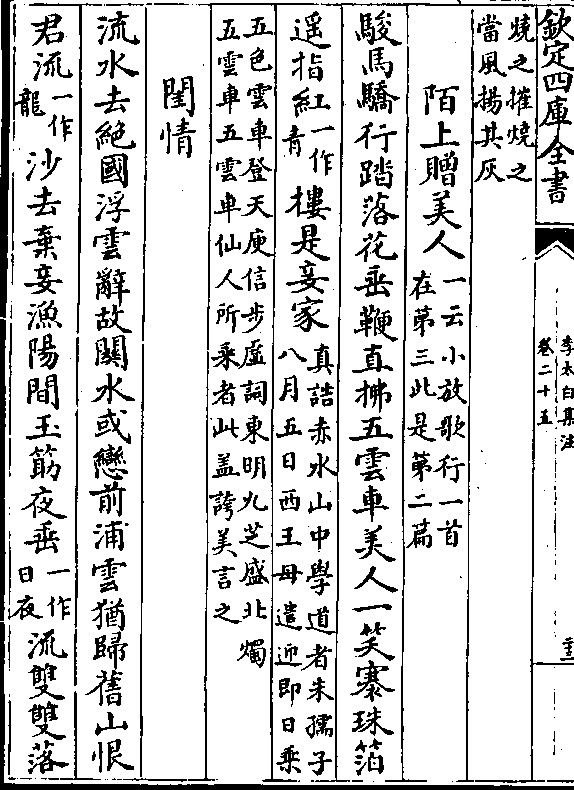 欽定四庫全書
李太白集注
卷二十五
燒之摧燒之
當風揚其灰
陌上贈美人
一云小放歌行一首
在第三此是第二篇
駿馬驕行踏落花垂鞭直拂五雲車美人一笑褰珠箔
遥指紅一作青樓是妾家
真誥赤水山中學道者朱孺子
八月五日西王母遣迎即日乗
五色雲車登天庾信步虚詞東明九芝盛北燭
五雲車五雲車仙人所乗者此盖誇美言之
閨情
流水去絶國浮雲辭故關水或戀前浦雲猶歸舊山恨
君流一作龍沙去棄妾漁陽間玉筯夜垂一作日夜流雙雙落